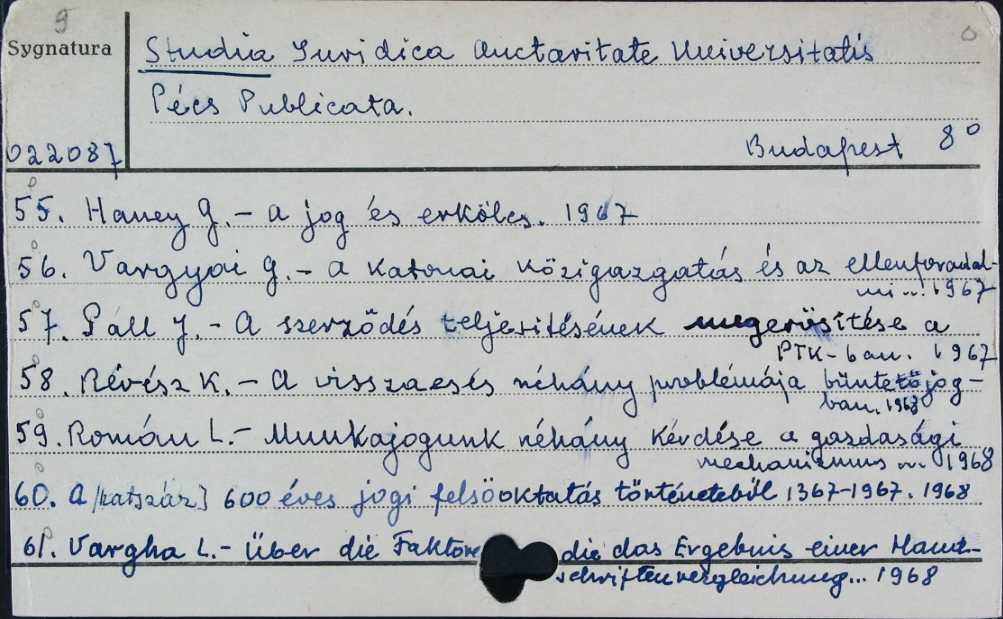 9
Sygnatura
Studia Iuridica Auctoritate Universitatis
Pécs Publicata.
022087
Budapest 8°
55. Haney G. - A jog és erkölcs. 1967
56. Vargyai G. - A katonai közigazgatás és az ellenforadal-
mi ... 1967
57. Páll J. - A szerződés teljesitésének megerősítése a
PTK-ban. 1967
58. Révész K. - A visszaesés néhány problémája büntetőjog-
ban. 1968
59. Román L. - Munkajogunk néhány kérdése a gazdasági
mechanizmus ... 1968
60. A /hatszáz] 600 éves jogi felsőoktatás történetéből 1367-1967. 1968
61. Vargha L. - Über die Faktore die das Ergebnis einer Hand-
schriftenvergleichung... 1968